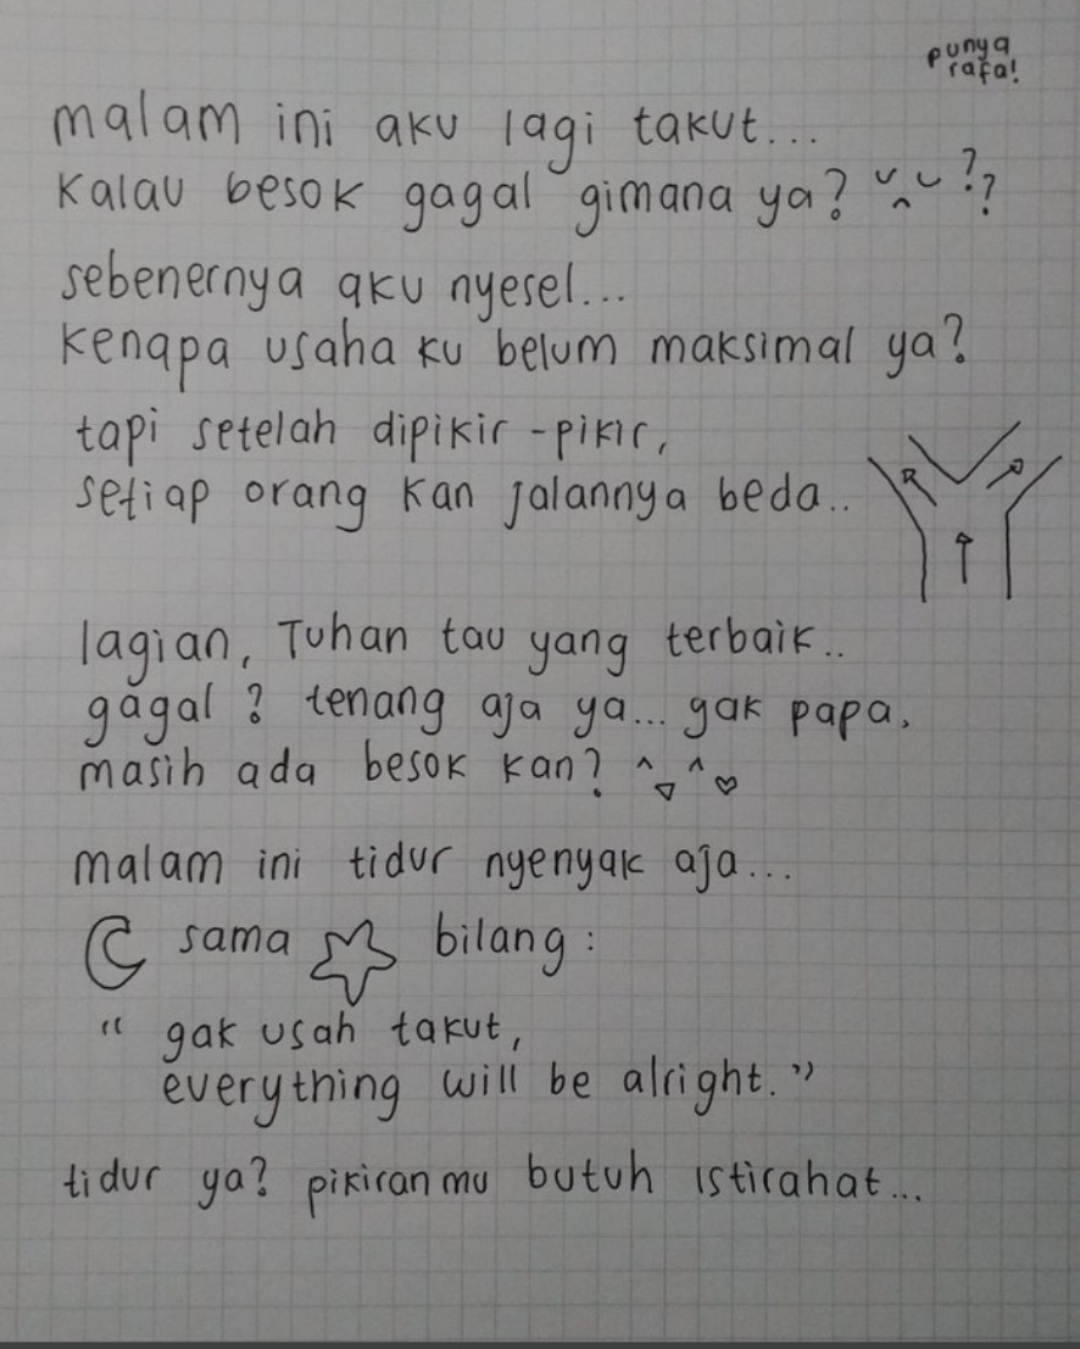 punya
rafa!
malam ini aku lagi takut...
kalau besok gagal gimana ya? ??
sebenernya aku nyesel...
kenapa usaha ku belum maksimal ya?
tapi setelah dipikir-pikir,
setiap orang kan jalannya beda..
lagian, Tuhan tau yang terbaik..
gagal? tenang aja ya... gak papa.
masih ada besok kan? ^▽^♡
malam ini tidur nyenyak aja...
sama bilang:
"gak usah takut,
everything will be alright."
tidur ya? pikiranmu butuh istirahat...